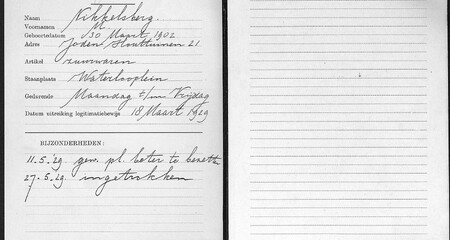 Naam Kikkelsberg.
Voornamen M.
Geboortedatum 30 Maart 1902
Adres Joden Houttuinen 21
Artikel zuurwaren
Staanplaats Waterlooplein
Gedurende Maandag t/m Vrijdag
Datum uitreiking legitimatiebewijs 18 Maart 1929
BIJZONDERHEDEN:
11.5.29 gew. pl. beter te
27.5.29 ingetrokken